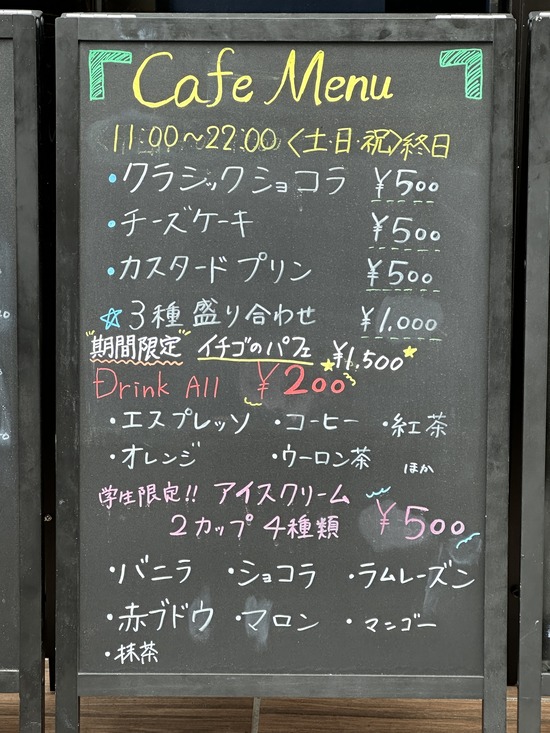 Cafe Menu
11:00～22:00 〈土・日・祝〉終日
・クラシックショコラ ¥500
・チーズケーキ ¥500
・カスタードプリン ¥500
☆3種盛り合わせ ¥1.000
"期間限定" イチゴのパフェ ¥1.500
Drink All ¥200
・エスプレッソ ・コーヒー ・紅茶
・オレンジ ・ウーロン茶 ほか
学生限定!! アイスクリーム
2カップ 4種類 ¥500
・バニラ ・ショコラ ・ラムレーズン
・赤ブドウ ・マロン ・マンゴー
・抹茶